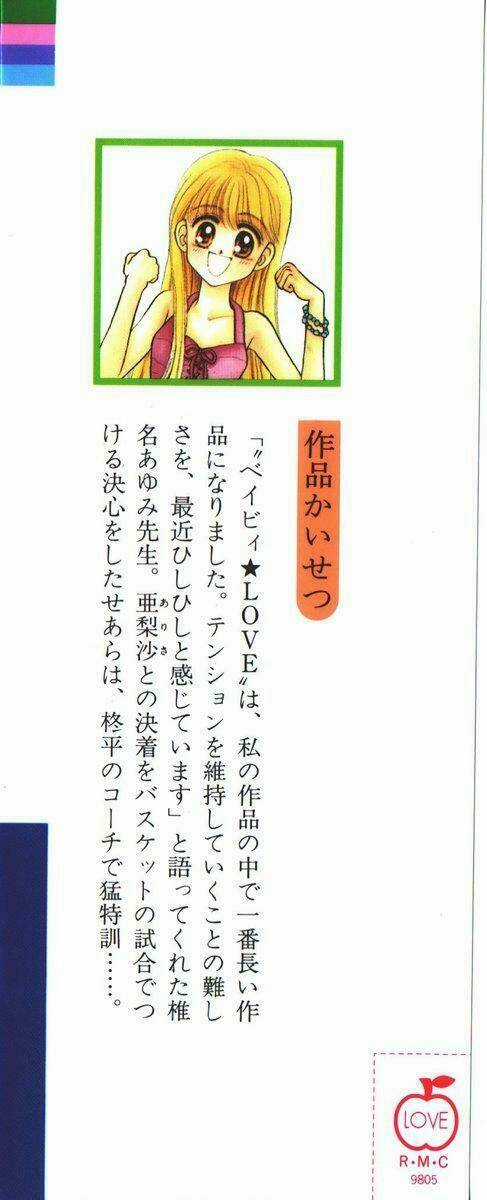 作品かいせつ
「〝ベイビィ★LOVE〟は、私の作品の中で一番長い作
品になりました。テンションを維持していくことの難し
さを、最近ひしひしと感じています」と語ってくれた椎
名あゆみ先生。亜梨沙との決着をバスケットの試合でつ
ける決心をしたせあらは、柊平のコーチで猛特訓……。
ありさ
LOVE
R・M・C
9805